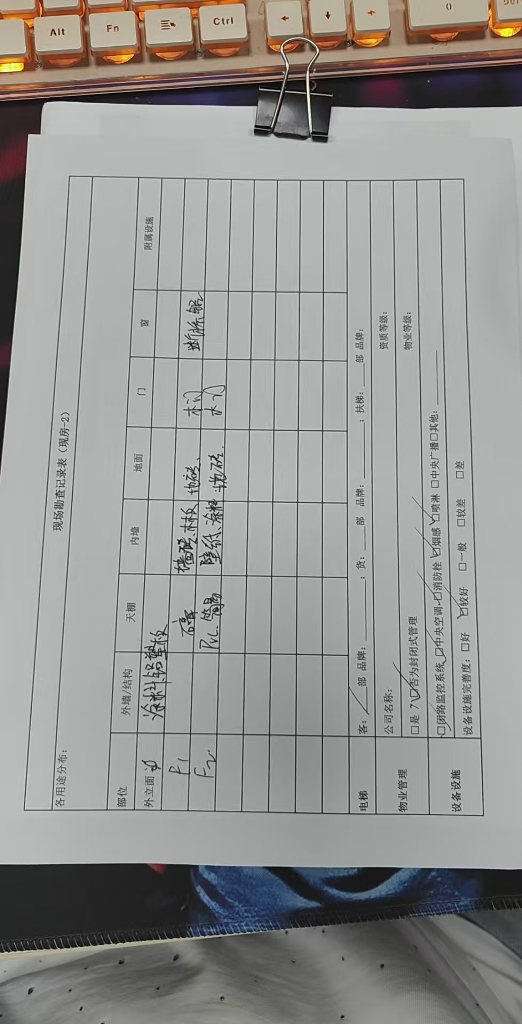 现场勘查记录表（现房-2）
各用途分布：
部位 外墙/结构 天棚 内墙 地面 门 窗 附属设施
外立面 涂料、铝塑板
F1 石膏 墙砖、木板 地砖、 木门 断桥铝
F2 PVC、 壁纸、涂料 地砖、 木门
电梯 客：___部 品牌：______；货：___部 品牌：______；扶梯：___部 品牌：
物业管理 公司名称： 资质等级：
□是 □否为封闭式管理 物业等级：
设备设施 □闭路监控系统 □中央空调 □消防栓 □烟感 □喷淋 □中央广播□其他：______
设备设施完善度：□好 □较好 □一般 □较差 □差
Alt
Fn
Ctrl